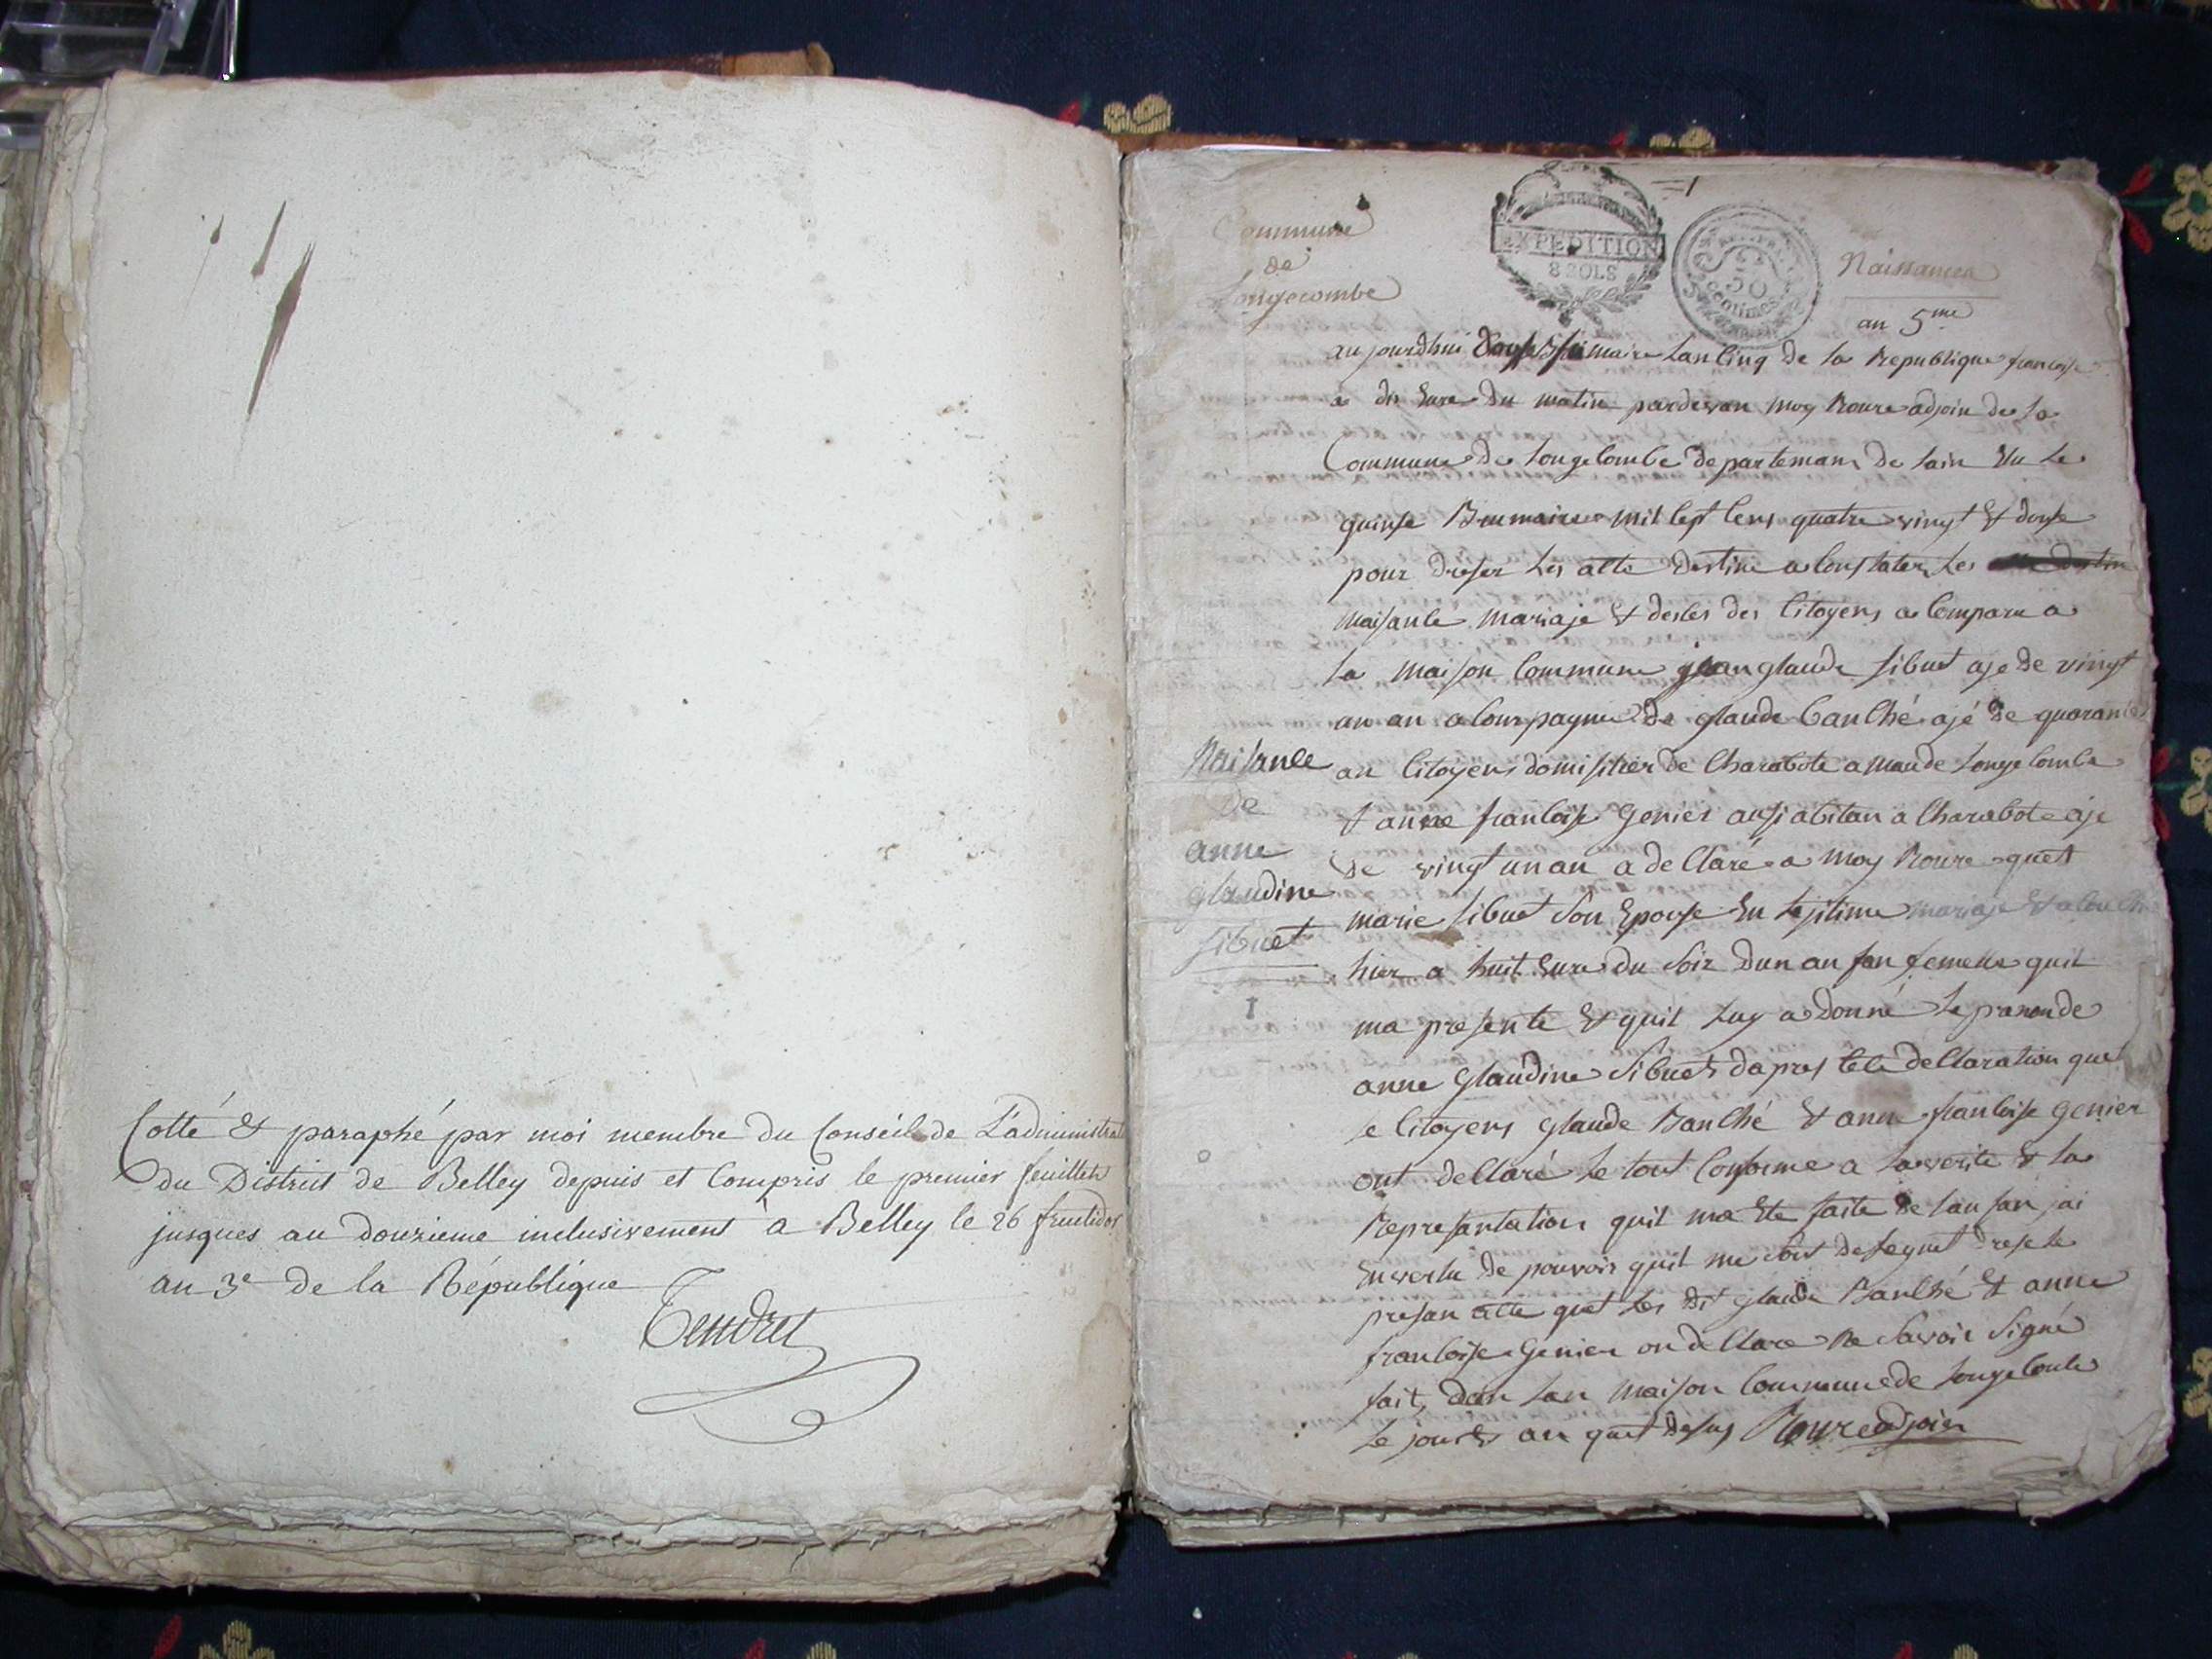 Cotté & paraphé par moi membre du Conseil de L'administrat
du District de Belley depuis et Compris le premier feuillet
jusques au douzieme inclusivement à Belley le 26 fructidor
an 3e de la République
Tendret
=1
Commune
de
Longecombe
EXPEDITION
8 SOLS
50
centimes
Naissances
an 5me
aujourdhui frimaire lan cinq de la Republique francoise
a dix eure du matin pardevan moy Roure adjoin de la
Commune de longecombe departeman de lain elu le
quinse Brumaire mil sept cens quatre vingt & douse
pour dreser les acte destine a constater les
naisance mariaje & deces des citoyens a comparu a
la maison commune jean glaude sibuet aje de vingt
an an a compagnie de glaude Banché ajé de quarante
an citoyens domisilier de Charabote amau de longecombe
& anne francoise Genier ausi abitan a Charabote aje
de vingt un an a declaré a moy Roure quet
marie sibuet son epouse en lejitime mariaje
hier a huit eure du soir dun anfan femelle quil
ma presente & quil luy a donné le pranon de
anne glaudine sibuet dapres cete declaration quet
le citoyens glaude Banché & anne francoise genier
ont declaré le tout conforme a la verite & la
Represantation quil ma ete faite de lanfan jai
en vertu de pouvoir quil me sont deleguet dresé le
presan acte quet les dit glaude Banché & anne
francoise Genier on declare ne savoir signé
fait dan lan maison commune de longecombe
le jour & an quet desus Roure adjoin
Naisance
de
anne
glaudine
sibuet
1